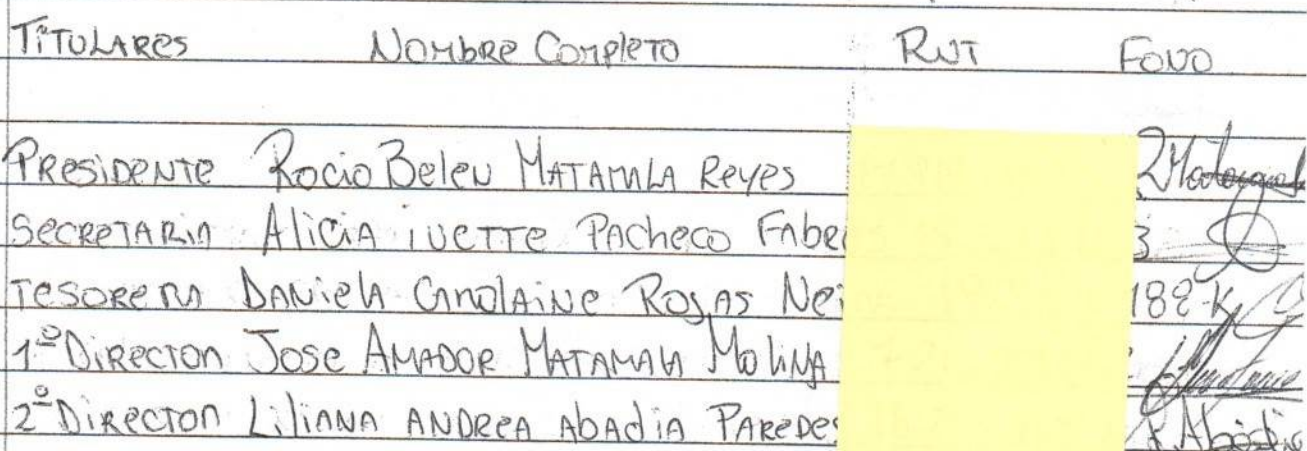 TÍTULARES NOMBRE COMPLETO RUT FONO
PRESIDENTE ROCIO BELEN MATAMALA REYES
SECRETARIA ALICIA IVETTE PACHECO FABRE
TESORERA DANIELA CAROLAINE ROJAS NEI 182-K
1º DIRECTOR JOSE AMADOR MATAMALA MOLINA
2º DIRECTOR LILIANA ANDREA ABADIA PAREDES